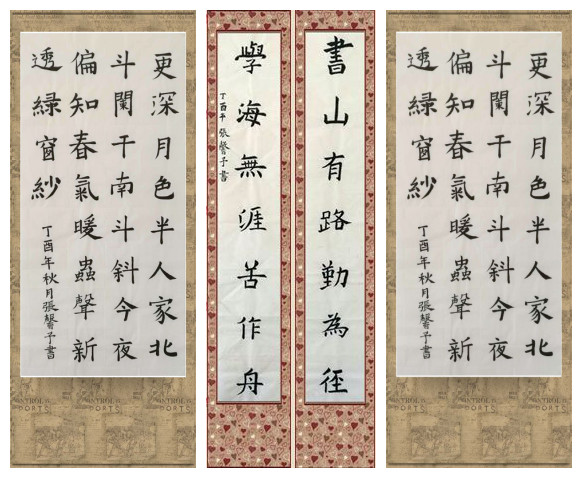 更深月色半人家北
斗闌干南斗斜今夜
偏知春氣暖蟲聲新
透綠窗紗
丁酉年秋月張馨予書
書山有路勤為徑
學海無涯苦作舟
丁酉年 張馨予書
更深月色半人家北
斗闌干南斗斜今夜
偏知春氣暖蟲聲新
透綠窗紗
丁酉年秋月張馨予書